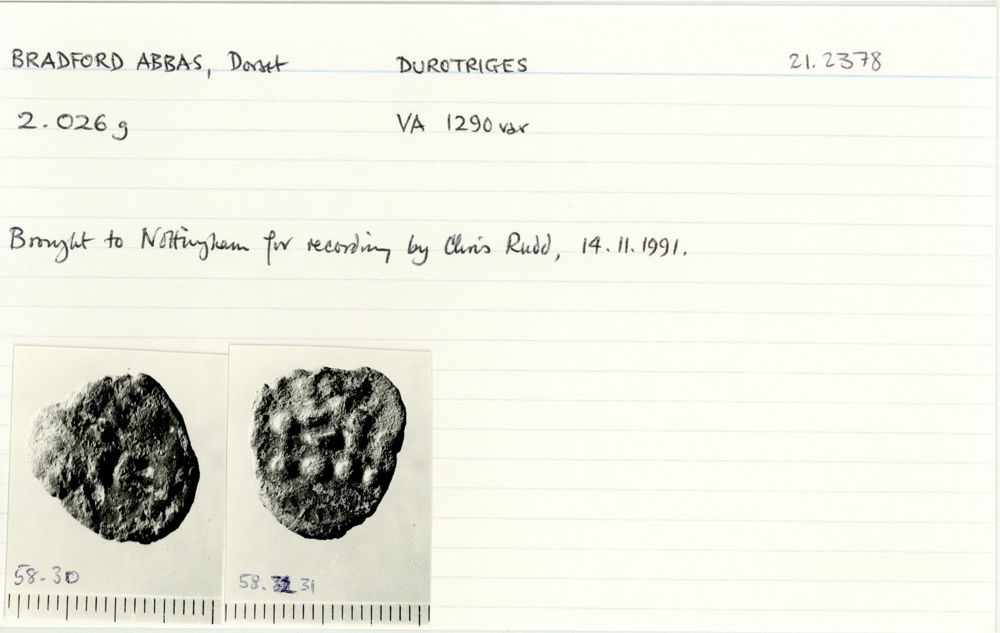 BRADFORD ABBAS, Dorset DUROTRIGES 21.2378
2.026g VA 1290 var
Brought to Nottingham for recording by Chris Rudd, 14.11.1991.
58.30 58. 31